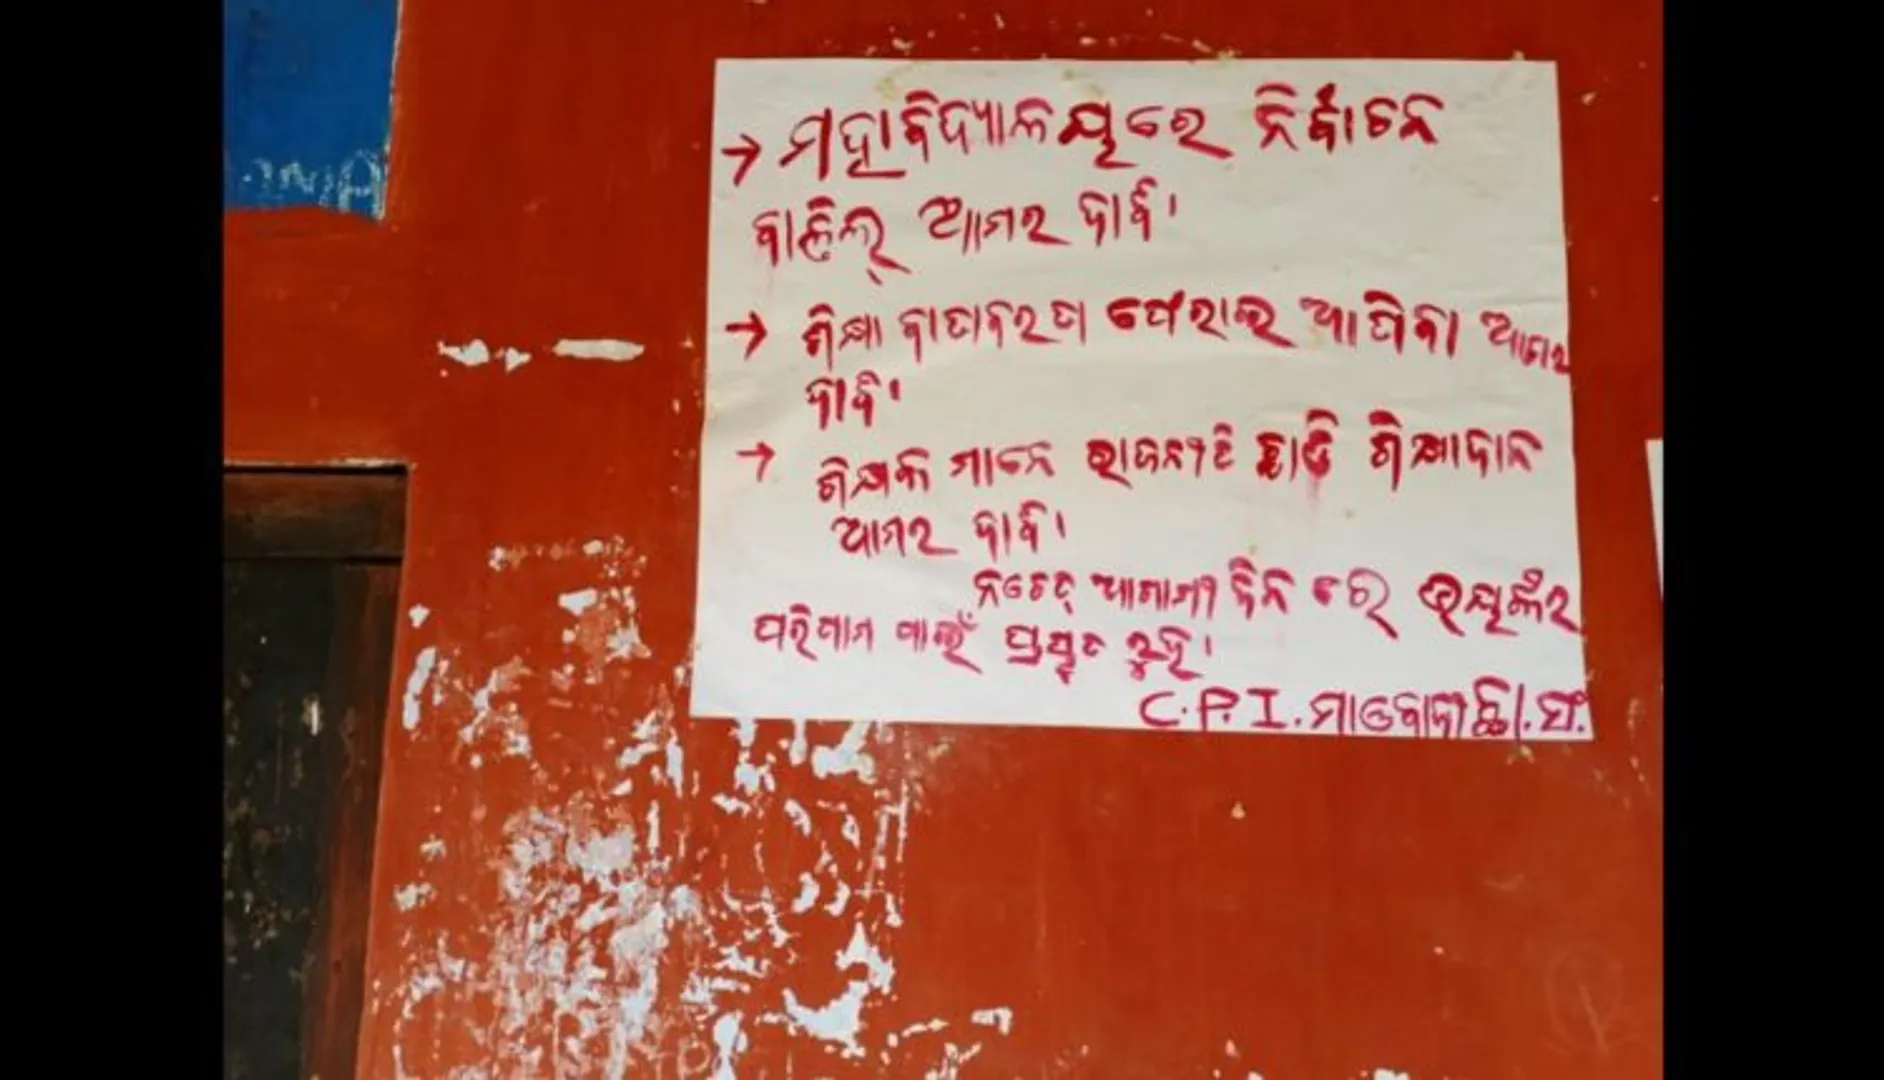 → ମହାବିଦ୍ୟାଳୟରେ ନିର୍ବାଚନ
ବାତିଲ୍ ଆମର ଦାବି।
→ ଶିକ୍ଷା ବାତାବରଣ ଫେରାଇ ଆଣିବା ଆମର
ଦାବି।
→ ଶିକ୍ଷକ ମାନେ ରାଜନୀତି ଛାଡି ଶିକ୍ଷାଦାନ
ଆମର ଦାବି।
ନଚେତ୍ ଆଗାମୀ ଦିନ ରେ ଭୟଙ୍କର
ପରିଣାମ ପାଇଁ ପ୍ରସ୍ତୁତ ରୁହ।
C.P.I. ମାଓବାଦୀ